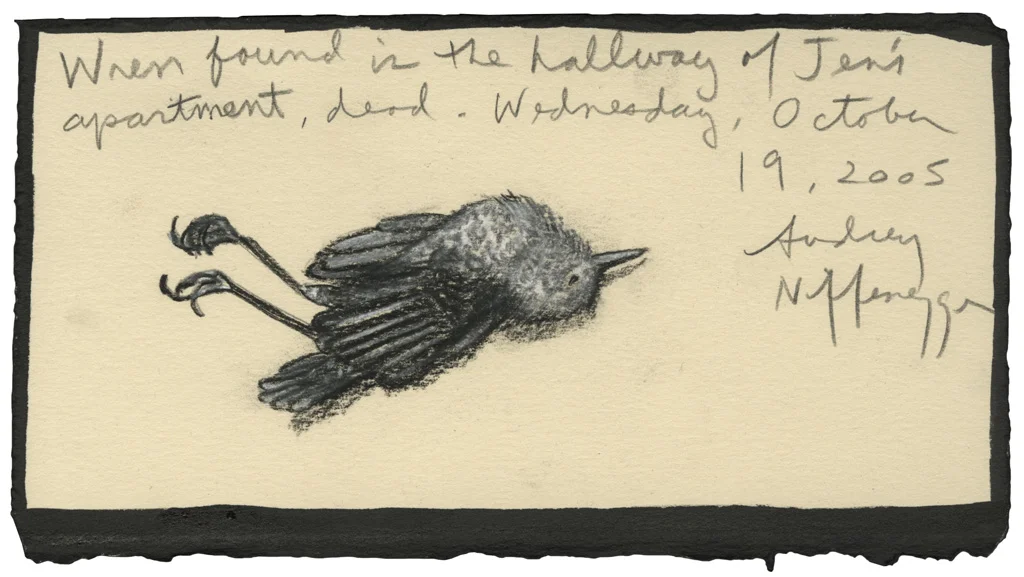 Wren found in the hallway of Jen's
apartment, dead. Wednesday, October
19, 2005
Audrey
Niffenegger